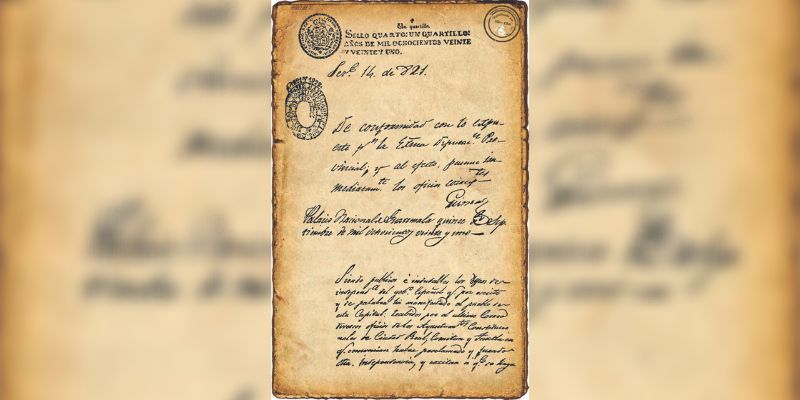 Un quartillo.
SELLO QUARTO: UN QUARTILLO:
AÑOS DE MIL OCHOCIENTOS VEINTE
Y VEINTE Y UNO.
14. de 821.
De conformidad con lo expu-
esto pʳ la Exma Diputacⁿ Pro-
vincial; y al efecto, pasense in-
mediatamᵗᵉ los oficios
Palacio Nacional de Guatemala quince de Sep-
tiembre de mil ochocientos veinte y uno
Siendo publicos é indudables los deseos de
independᵃ del gobⁿᵒ Español qᵉ por escrito
y de palabra ha manifestado el pueblo de
esta Capital. recibidos por el ultimo Correo
diversos oficios de los Ayuntamᵗᵒˢ Constitucio-
nales de Ciudad Real, Comitan y Tuxtla en
qᵉ comunican haber proclamado y jurado
dha. Independencia, y excitan a qᵉ se haga